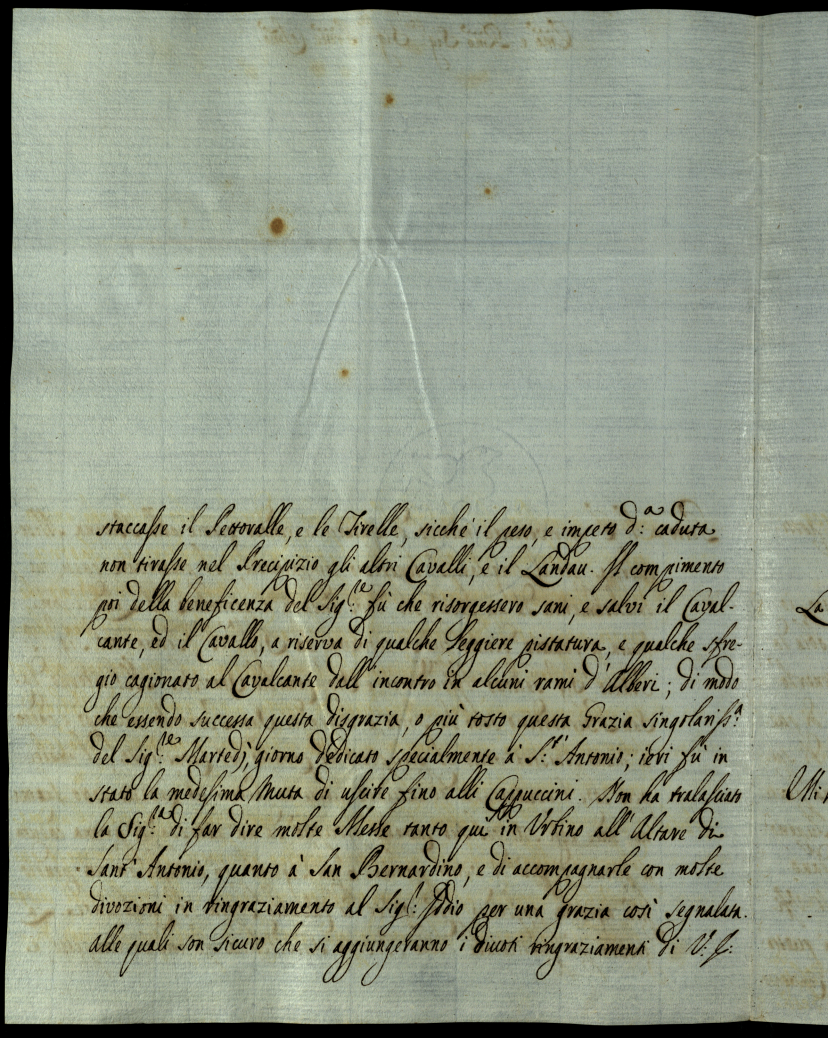 staccasse il Pettoralle, e le Tirelle, sicché il peso, e impeto d:ª caduta
non tirasse nel Precipizio gli altri Cavalli, e il Landau. Il compimento
poi della beneficenza del Sig:re fù che risorgessero sani, e salvi il Caval-
cante, ed il Cavallo, a riserva di qualche leggiere pistatura, e qualche sfre-
gio cagionato al Cavalcante dall' incontro in alcuni rami d'Alberi; di modo
che essendo successa questa disgrazia, o più tosto questa Grazia singolariss:ª
del Sig:re Martedj, giorno dedicato specialmente à S.t' Antonio; ieri fù in
stato la medesima Muta di uscire fino alli Cappuccini. Non ha tralasciato
la Sig:ra di far dire molte Messe tanto quì in Urbino all' Altare di
Sant' Antonio, quanto à San Bernardino, e di accompagnarle con molte
divozioni in ringraziamento al Sig:r Iddio per una grazia così segnalata.
alle quali son sicuro che si aggiungeranno i divoti ringraziamenti di V: E:
La